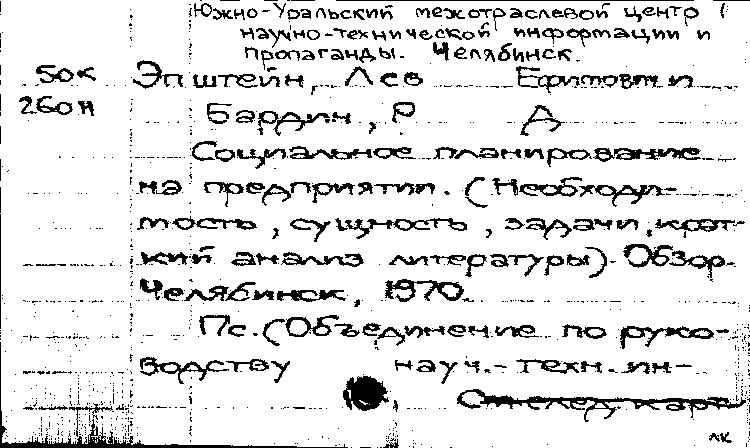 Южно-Уральский межотраслевой центр
научно-технической информации и
пропаганды. Челябинск.
50к Эпштейн, Лев Ефимович и
260н Бардин, Р Д
Социальное планирование
на предприятии. (Необходи-
мость, сущность, задачи, крат-
кий анализ литературы). Обзор.
Челябинск, 1970.
Пс. (Объединение по руко-
водству науч.-техн. ин-
См след. карт
лк